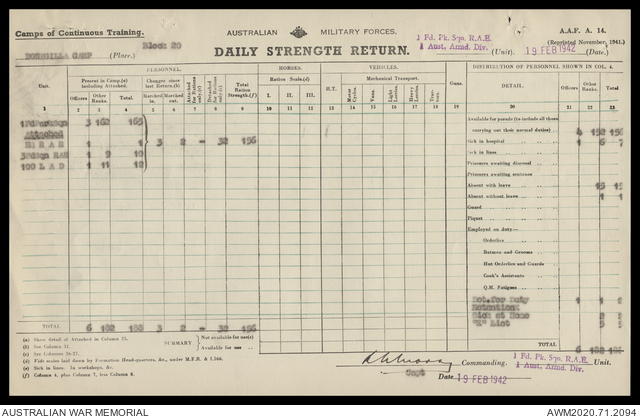 Camps of Continuous Training.
AUSTRALIAN MILITARY FORCES.
1 Fd. Pk. Sqn. R.A.E.
1 Aust. Armd. Div.
A.A.F. A. 14.
(Reprinted November, 1941.)
CAMP (Place.) Block 20
DAILY STRENGTH RETURN.
(Unit). 19 FEB 1942 (Date.)
PERSONNEL. HORSES. VEHICLES. DISTRIBUTION OF PERSONNEL SHOWN IN COL. 4.
Unit.
Present in Camp.(a) including Attached.
Changes since last Return.(b)
Attached for Rations only.(c)
Detached for Rations only.(c)
Total Rations Strength.(f)
Ration Scale.(d)
H.T.
Mechanical Transport.
Guns.
DETAIL.
Officers
Other Ranks.
Total.
Officers.
Other Ranks.
Total.
Marched in.
Marched out.
I. II. III. IV.
Motor Cycles.
Vans.
Light Lorries.
Heavy Lorries.
Trac-tors.
1 2 3 4 5 6 7 8 9 10 11 12 13 14 15 16 17 18 19 20 21 22 23
3 162 165
Attached
1 1 3 2 – 32 156
1 9 10
100 L A D 1 11 12
Available for parade (to include all those
carrying out their normal duties) 4 152 156
Sick in hospital 1 6 7
Sick in lines
Prisoners awaiting disposal
Prisoners awaiting sentence
Absent with leave 15 15
Absent without leave 1 1
Guard
Piquet
Employed on duty—
Orderlies
Batmen and Grooms
Hut Orderlies and Guards
Cook's Assistants
Q.M. Fatigues
Det. for Duty 1 1 2
Detention
Sick at Home
"X" List
TOTAL 6 182 188 3 2 – 32 156
TOTAL 6 182 188
(a) Show detail of Attached in Column 25.
(b) See Column 31.
(c) See Columns 26-27.
(d) Fide scales laid down by Formation Head-quarters, &c., under M.F.R. & I.
(e) Sick in lines. In workshops, &c.
(f) Column 4, plus Column 7, less Column 8.
SUMMARY
Not available for use(e)
Available for use
Commanding. 1 Fd. Pk. Sqn. R.A.E.
1 Aust. Armd. Div. Unit.
Capt
Date 19 FEB 1942
AUSTRALIAN WAR MEMORIAL
AWM2020.71.2094